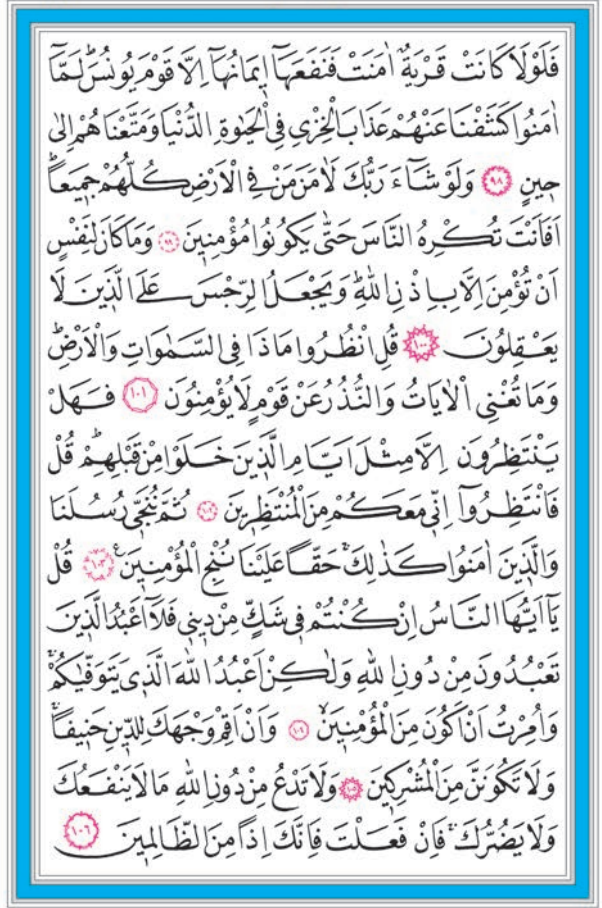 فَلَوْلَا كَانَتْ قَرْيَةٌ اٰمَنَتْ فَنَفَعَهَٓا ا۪يمَانُهَٓا اِلَّا قَوْمَ يُونُسَۜ لَمَّٓا
اٰمَنُوا كَشَفْنَا عَنْهُمْ عَذَابَ الْخِزْيِ فِي الْحَيٰوةِ الدُّنْيَا وَمَتَّعْنَاهُمْ اِلٰى
ح۪ينٍ ٩٨ وَلَوْ شَٓاءَ رَبُّكَ لَاٰمَنَ مَنْ فِي الْاَرْضِ كُلُّهُمْ جَم۪يعًاۜ
اَفَاَنْتَ تُكْرِهُ النَّاسَ حَتّٰى يَكُونُوا مُؤْمِن۪ينَ ٩٩ وَمَا كَانَ لِنَفْسٍ
اَنْ تُؤْمِنَ اِلَّا بِاِذْنِ اللّٰهِۜ وَيَجْعَلُ الرِّجْسَ عَلَى الَّذ۪ينَ لَا
يَعْقِلُونَ ١٠٠ قُلِ انْظُرُوا مَاذَا فِي السَّمٰوَاتِ وَالْاَرْضِۜ
وَمَا تُغْنِي الْاٰيَاتُ وَالنُّذُرُ عَنْ قَوْمٍ لَا يُؤْمِنُونَ ١٠١ فَهَلْ
يَنْتَظِرُونَ اِلَّا مِثْلَ اَيَّامِ الَّذ۪ينَ خَلَوْا مِنْ قَبْلِهِمْۜ قُلْ
فَانْتَظِرُٓوا اِنّ۪ي مَعَكُمْ مِنَ الْمُنْتَظِر۪ينَ ١٠٢ ثُمَّ نُنَجّ۪ي رُسُلَنَا
وَالَّذ۪ينَ اٰمَنُوا كَذٰلِكَۚ حَقًّا عَلَيْنَا نُنْجِ الْمُؤْمِن۪ينَ۟ ١٠٣ قُلْ
يَٓا اَيُّهَا النَّاسُ اِنْ كُنْتُمْ ف۪ي شَكٍّ مِنْ د۪ين۪ي فَلَٓا اَعْبُدُ الَّذ۪ينَ
تَعْبُدُونَ مِنْ دُونِ اللّٰهِ وَلٰكِنْ اَعْبُدُ اللّٰهَ الَّذ۪ي يَتَوَفّٰيكُمْۚ
وَاُمِرْتُ اَنْ اَكُونَ مِنَ الْمُؤْمِن۪ينَۙ ١٠٤ وَاَنْ اَقِمْ وَجْهَكَ لِلدّ۪ينِ حَن۪يفًاۚ
وَلَا تَكُونَنَّ مِنَ الْمُشْرِك۪ينَ ١٠٥ وَلَا تَدْعُ مِنْ دُونِ اللّٰهِ مَا لَا يَنْفَعُكَ
وَلَا يَضُرُّكَۚ فَاِنْ فَعَلْتَ فَاِنَّكَ اِذًا مِنَ الظَّالِم۪ينَ ١٠٦